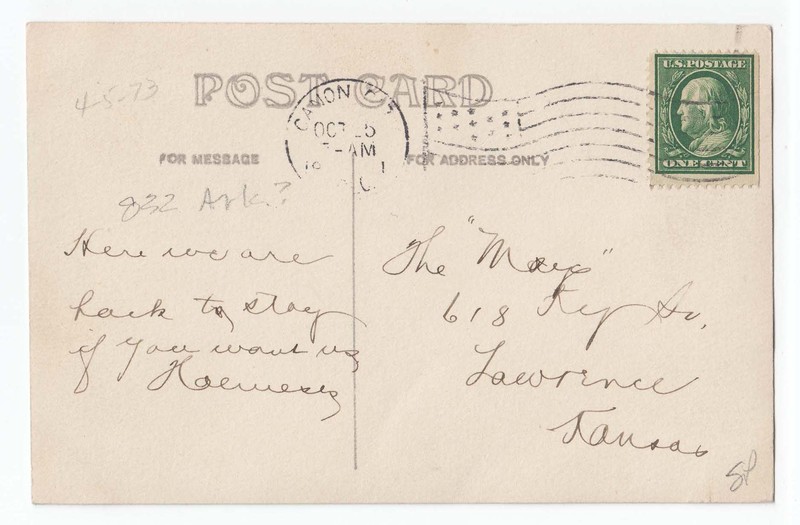 4-5-73
POST CARD
CANON CITY
OCT 25
AM
FOR MESSAGE
FOR ADDRESS ONLY
U.S. POSTAGE
ONE CENT
832 Ark?
Here we are
back to stay
if you want us
The "Mays"
618 Ky Av.
Lawrence
Kansas